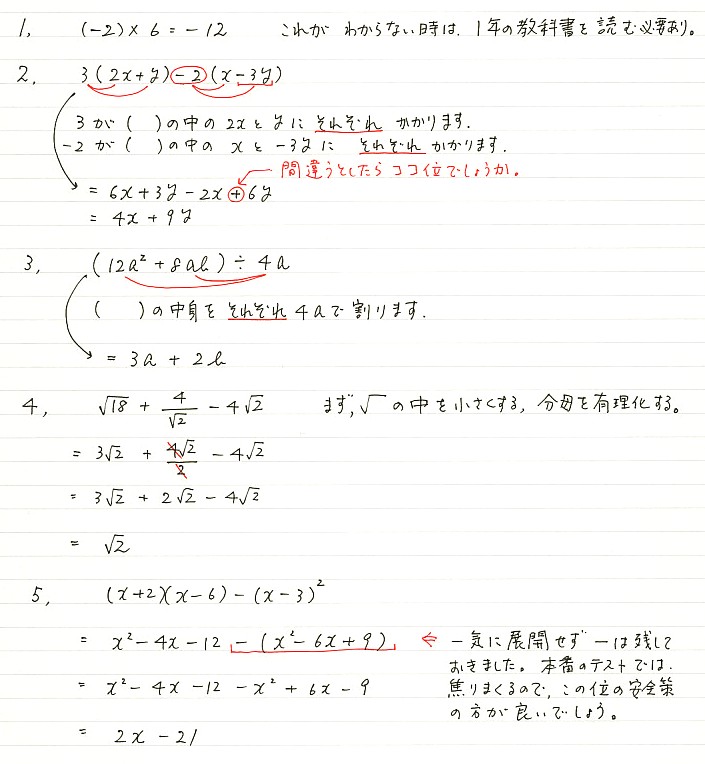 1, (-2)×6=-12 これが わからない時は、1年の教科書を読む必要あり。
2, 3(2x+y)-2(x-3y)
3が( )の中の 2xと yに それぞれ かかります.
-2が( )の中の xと -3yに それぞれ かかります.
間違うとしたら ココ位でしょうか。
= 6x+3y-2x+6y
= 4x+9y
3, (12a²+8ab)÷4a
( )の中身を それぞれ 4aで 割ります.
= 3a + 2b
4, √18 + 4/√2 - 4√2 まず,√の中を小さくする, 分母を有理化する。
= 3√2 + 4√2/2 - 4√2
= 3√2 + 2√2 - 4√2
= √2
5, (x+2)(x-6)-(x-3)²
= x²-4x-12-(x²-6x+9) ← 一気に展開せず ーは残して
おきました。本番のテストでは、
= x²-4x-12-x²+6x-9 焦りまくるので, この位の安全策
の方が良いでしょう。
= 2x-21